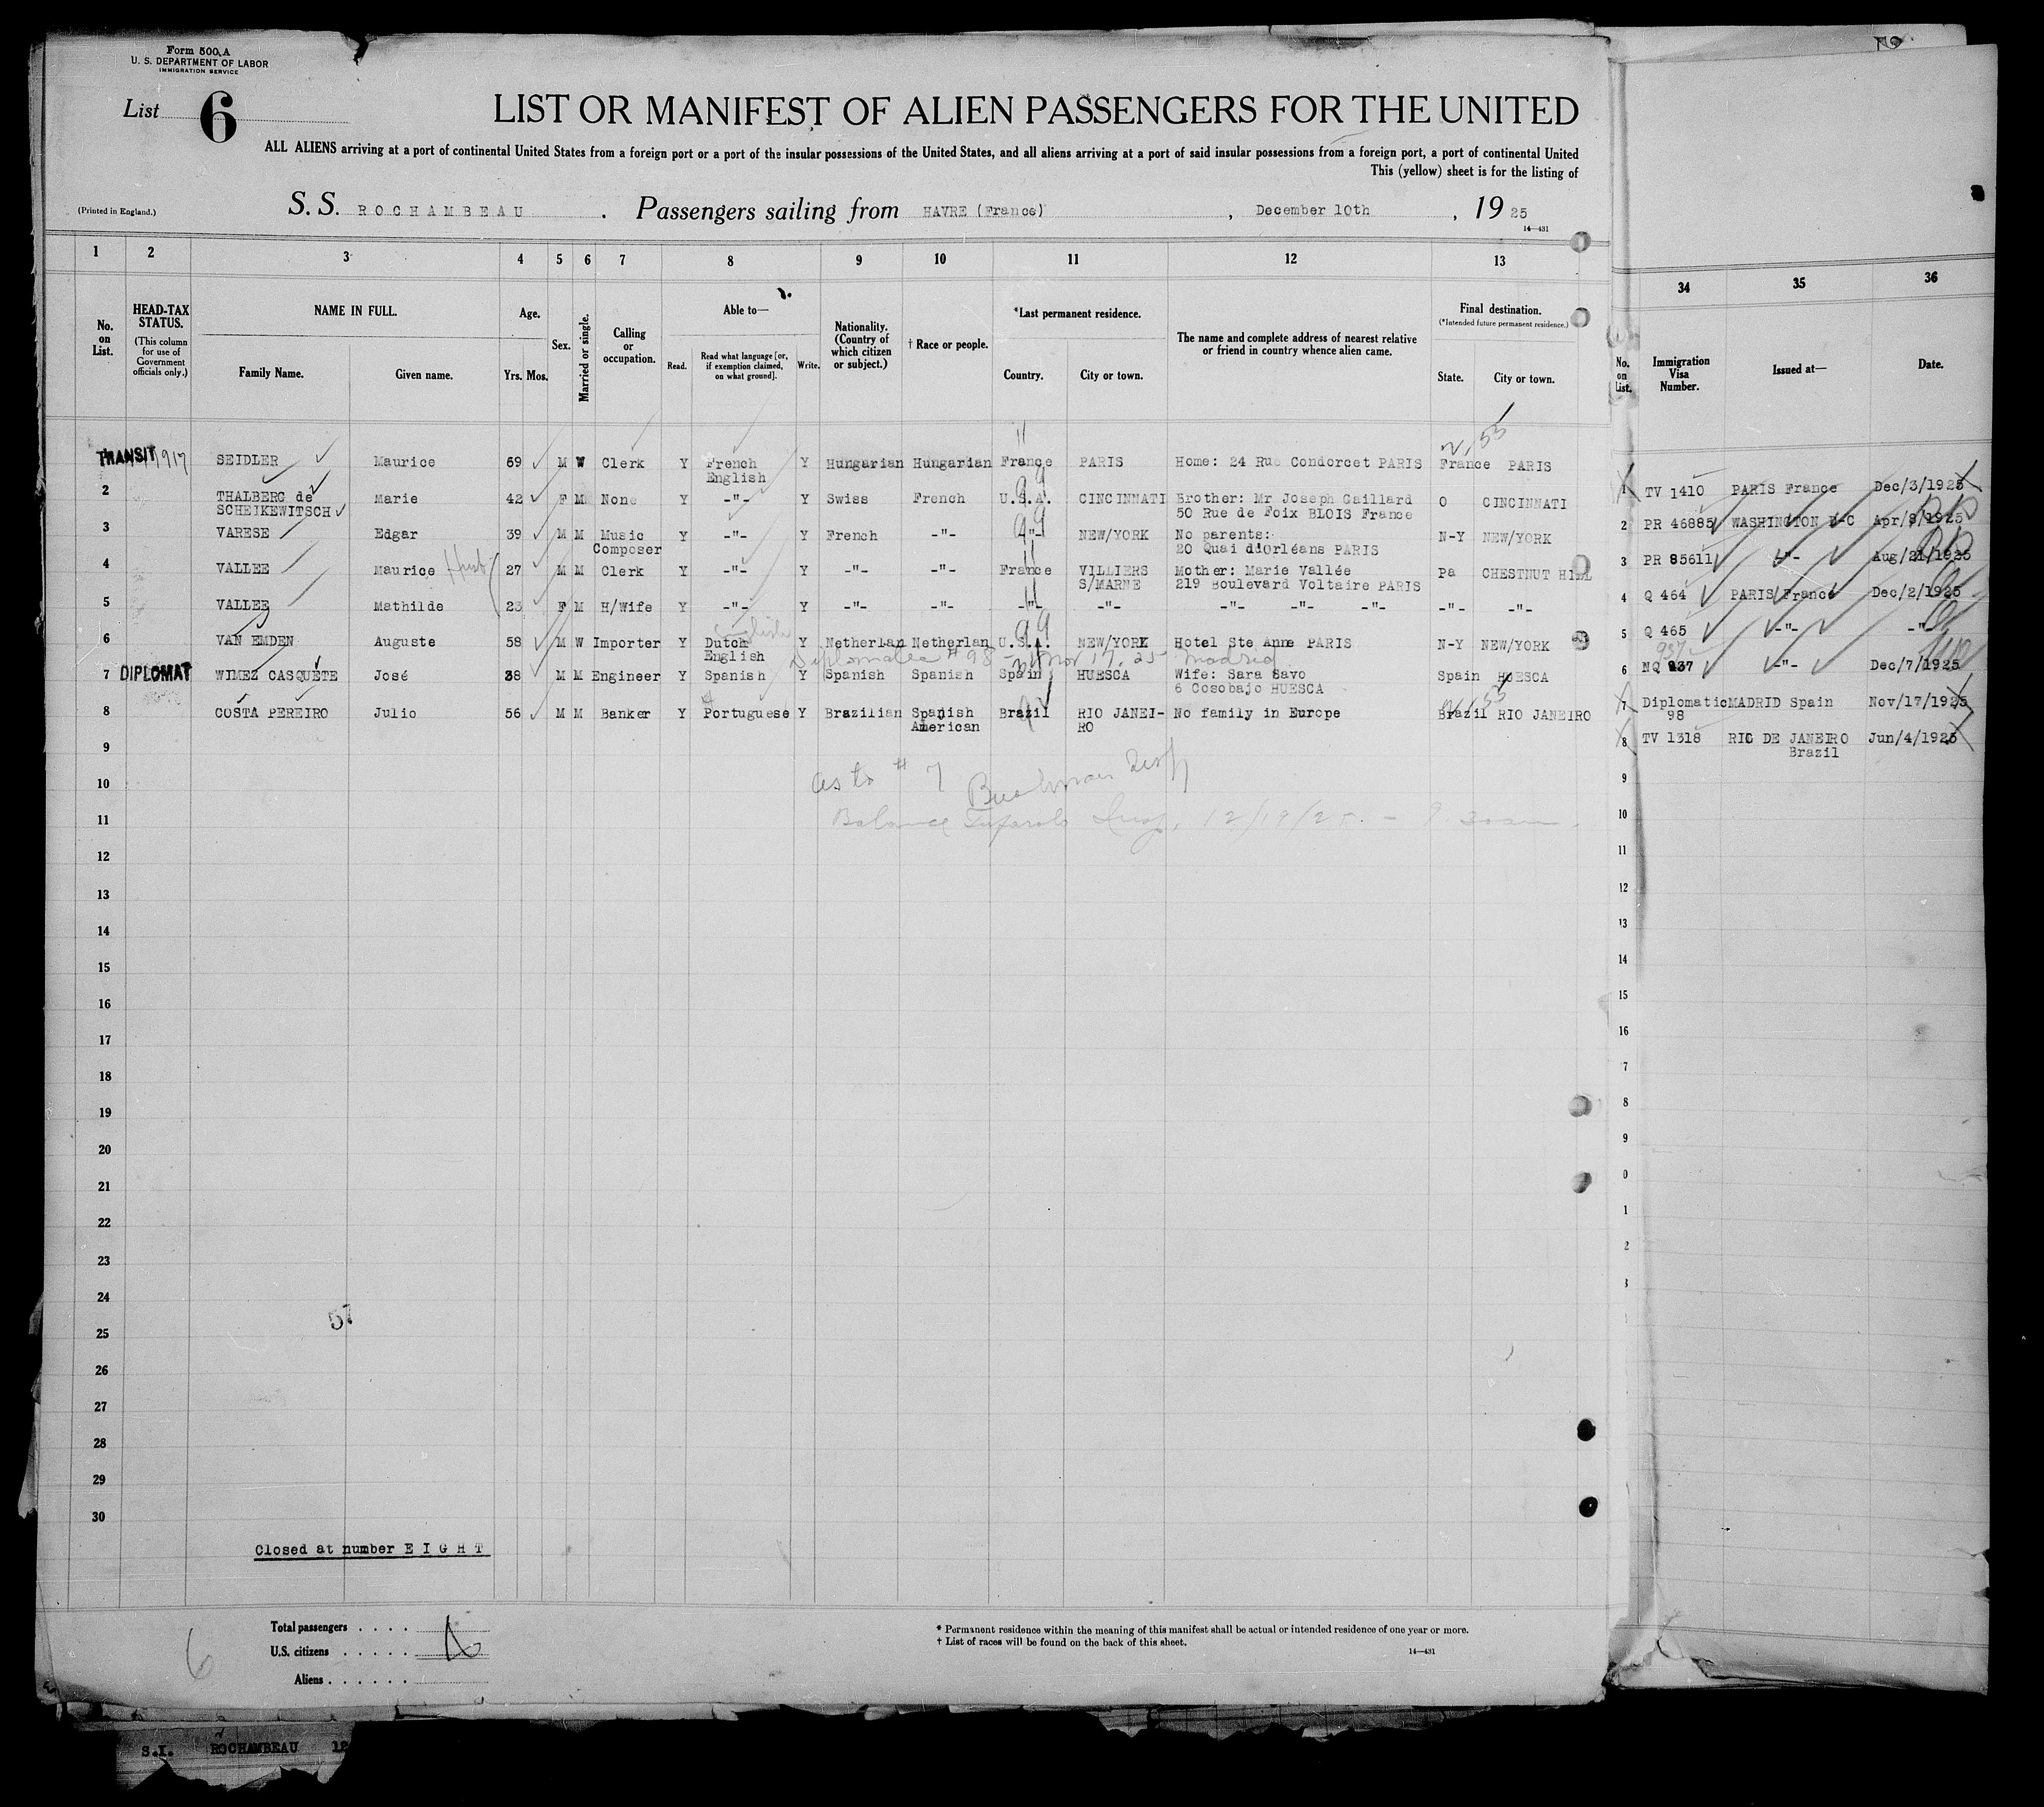 Form 500 A
U. S. DEPARTMENT OF LABOR
IMMIGRATION SERVICE
List 6
LIST OR MANIFEST OF ALIEN PASSENGERS FOR THE UNITED
ALL ALIENS arriving at a port of continental United States from a foreign port or a port of the insular possessions of the United States, and all aliens arriving at a port of said insular possessions from a foreign port, a port of continental United
This (yellow) sheet is for the listing of
(Printed in England.)
S. S. ROCHAMBEAU . Passengers sailing from HAVRE (France) , December 10th , 19 25
14—431
1 2 3 4 5 6 7 8 9 10 11 12 13
34 35 36
No. on List.
HEAD-TAX STATUS.
(This column for use of Government officials only.)
NAME IN FULL.
Family Name. Given name.
Age.
Yrs. Mos.
Sex.
Married or single.
Calling or occupation.
Able to—
Read. Read what language [or, if exemption claimed, on what ground]. Write.
Nationality. (Country of which citizen or subject.)
† Race or people.
*Last permanent residence.
Country. City or town.
The name and complete address of nearest relative or friend in country whence alien came.
Final destination.
(*Intended future permanent residence.)
State. City or town.
No. on List.
Immigration Visa Number.
Issued at—
Date.
TRANSIT 1917 SEIDLER Maurice 69 M W Clerk Y French English Y Hungarian Hungarian France PARIS Home: 24 Rue Condorcet PARIS France PARIS
2 THALBERG de SCHEIKEWITSCH Marie 42 F M None Y -"- Y Swiss French U.S.A. CINCINNATI Brother: Mr Joseph Gaillard 50 Rue de Foix BLOIS France O CINCINNATI
3 VARESE Edgar 39 M M Music Composer Y -"- Y French -"- -"- NEW/YORK No parents: 20 Quai d'Orléans PARIS N-Y NEW/YORK
4 VALLEE Maurice Husb 27 M M Clerk Y -"- Y -"- -"- France VILLIERS S/MARNE Mother: Marie Vallée 219 Boulevard Voltaire PARIS Pa CHESTNUT HILL
5 VALLEE Mathilde 23 F M H/Wife Y -"- Y -"- -"- -"- -"- -"- -"- -"- -"- -"-
6 VAN EMDEN Auguste 58 M W Importer Y Dutch English Y Netherlan Netherlan U.S.A. NEW/YORK Hotel Ste Anne PARIS N-Y NEW/YORK
English
98 Nov 17, 25 Madrid
7 DIPLOMAT WIMEZ CASQUETE José 38 M M Engineer Y Spanish Y Spanish Spanish Spain HUESCA Wife: Sara Savo 6 Cosobajo HUESCA Spain HUESCA
8 COSTA PEREIRO Julio 56 M M Banker Y Portuguese Y Brazilian Spanish American Brazil RIO JANEI-RO No family in Europe Brazil RIO JANEIRO
1 TV 1410 PARIS France Dec/3/1925
2 PR 46885 WASHINGTON D-C Apr/8/1925
3 PR 85611 -"- Aug/21/1925
4 Q 464 PARIS/France Dec/2/1925
5 Q 465 -"- -"-
937
6 NQ 937 -"- Dec/7/1925
7 Diplomatic 98 MADRID Spain Nov/17/1925
8 TV 1318 RIO DE JANEIRO Brazil Jun/4/1925
9
10
11
12
13
14
15
16
17
18
19
20
21
22
23
24
25
26
27
28
29
30
as to # 7
Balance 12/19/25 - 9.30am.
57
Closed at number EIGHT
6
Total passengers . . . . .
U.S. citizens . . . . . .
Aliens . . . . . .
* Permanent residence within the meaning of this manifest shall be actual or intended residence of one year or more.
† List of races will be found on the back of this sheet.
14—431
S.I. ROCHAMBEAU